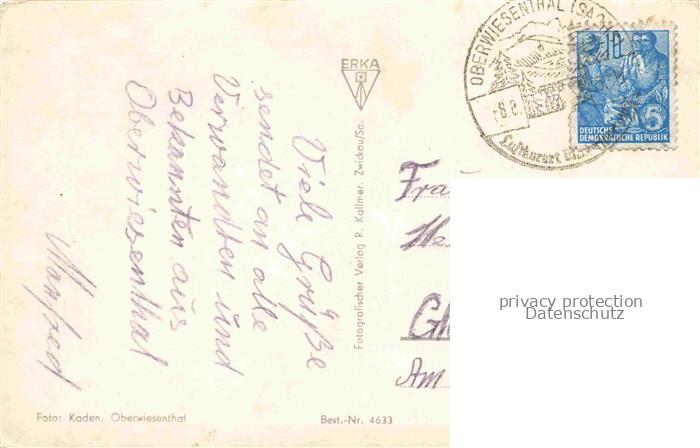 Viele Grüße
sendet an alle
Verwandten und
Bekannten aus
Oberwiesenthal
Manfred
ERKA
Fotografischer Verlag R. Kallmer, Zwickau/Sa.
Foto: Kaden, Oberwiesenthal
Best.-Nr. 4633
OBERWIESENTHAL (SA
8.8.
Luftkurort
10
5
DEUTSCHE
DEMOKRATISCHE REPUBLIK
Frau
Am
privacy protection
Datenschutz